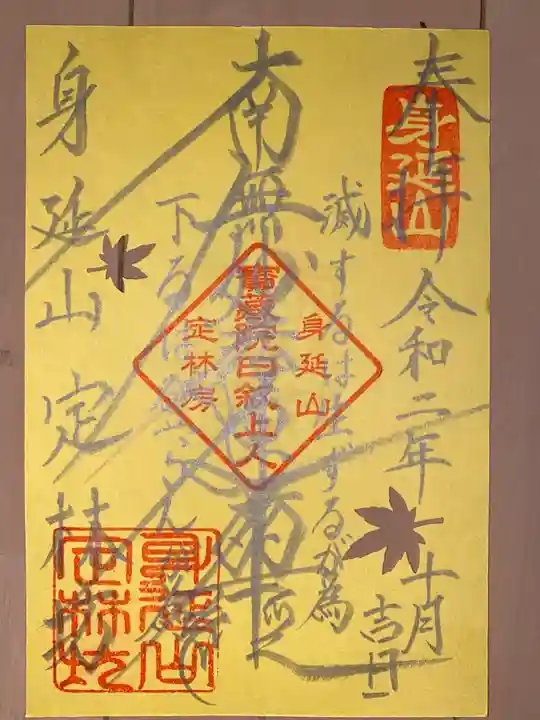 奉拝 令和二年 十月
吉日
身延山
滅するは生ずるが為
南無妙法蓮華経
下るは登らんが為
身延山
定林房
身延山 定林坊
身延山
定林坊